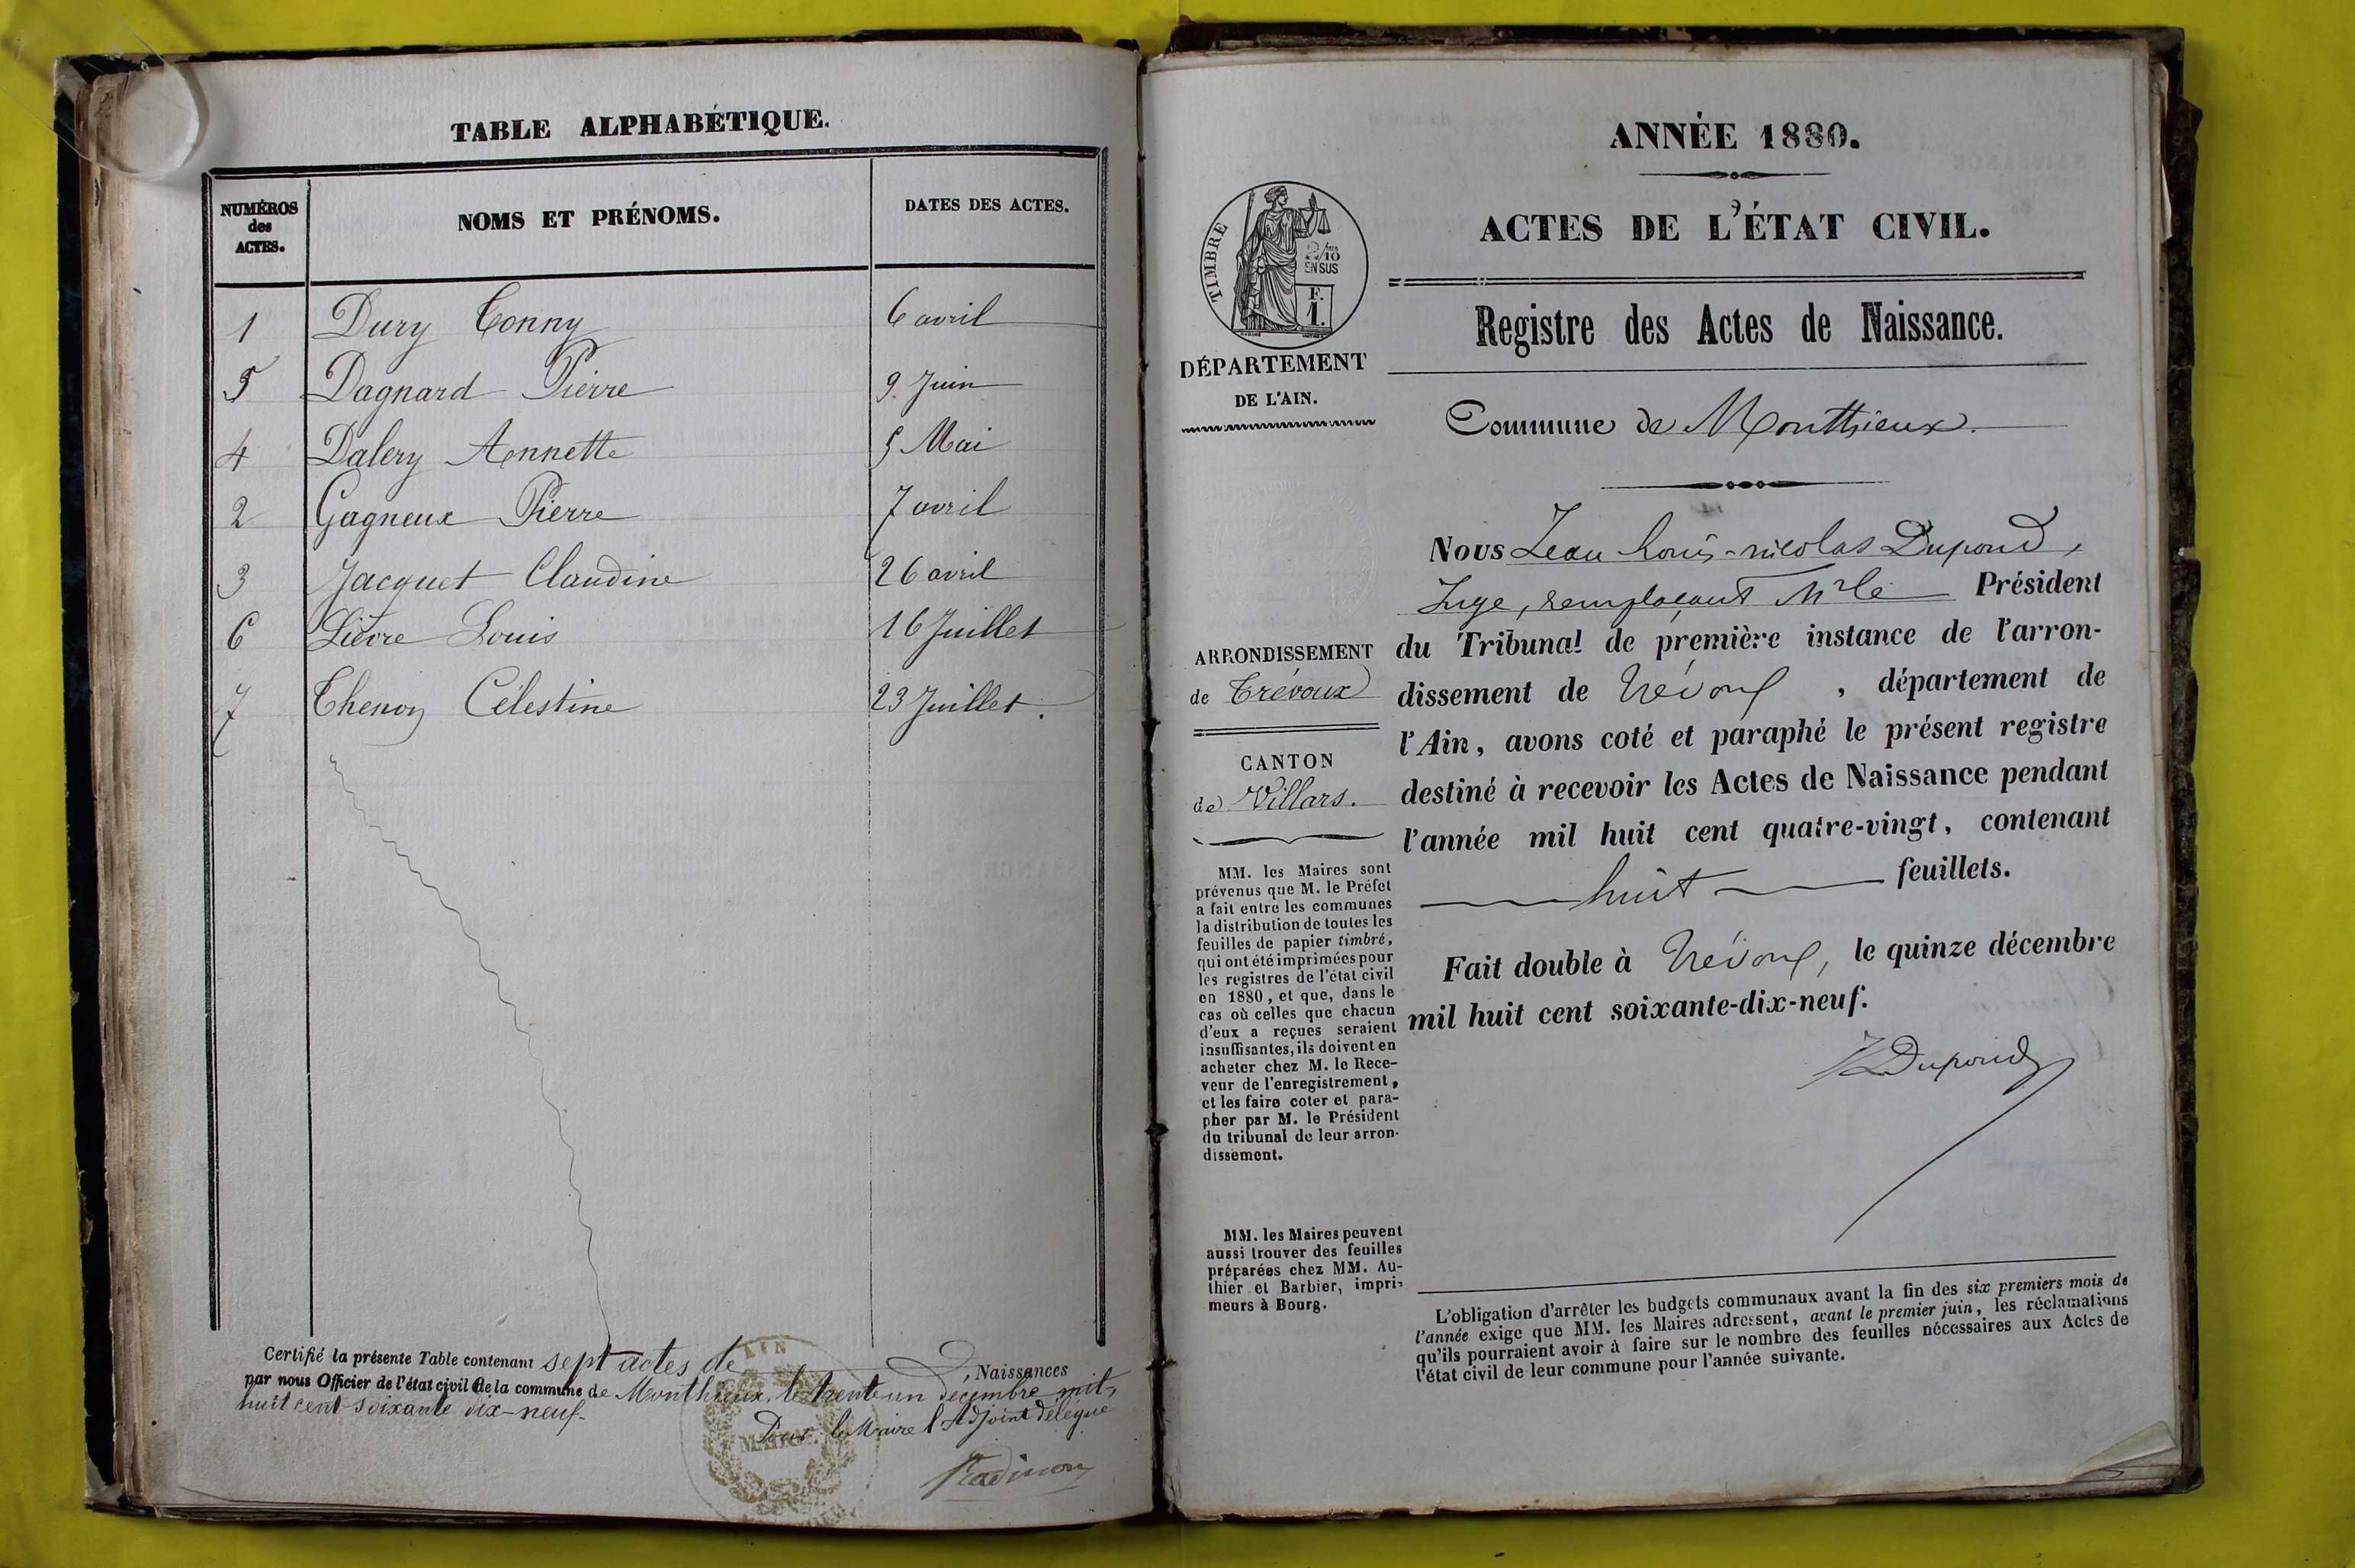 TABLE ALPHABÉTIQUE.
NUMÉROS
des
ACTES.
NOMS ET PRÉNOMS.
DATES DES ACTES.
1 Dury Tonny 6 avril
5 Dagnard Pierre 9 Juin
4 Dalery Annette 5 Mai
2 Gagneux Pierre 7 avril
3 Jacquet Claudine 26 avril
6 Lièvre Louis 16 Juillet
7 Thenon Célestine 23 Juillet.
Certifié la présente Table contenant sept actes de , Naissances
par nous Officier de l'état civil de la commune de Monthieux, le trente un décembre mil
huit cent soixante dix-neuf.
Pour le Maire l'Adjoint délégué
AIN
MAIRIE
ANNÉE 1880.
ACTES DE L'ÉTAT CIVIL.
TIMBRE
2/10
EN SUS
F.
1.
DÉPARTEMENT
DE L'AIN.
Registre des Actes de Naissance.
Commune de Monthieux.
Nous Jean Louis-nicolas Dupond,
Juge, remplaçant Mr le Président
du Tribunal de première instance de l'arron-
dissement de Trévoux, département de
l'Ain, avons coté et paraphé le présent registre
destiné à recevoir les Actes de Naissance pendant
l'année mil huit cent quatre-vingt, contenant
huit feuillets.
Fait double à Trévoux, le quinze décembre
mil huit cent soixante-dix-neuf.
Dupond
ARRONDISSEMENT
de Trévoux
CANTON
de Villars.
MM. les Maires sont
prévenus que M. le Préfet
a fait entre les communes
la distribution de toutes les
feuilles de papier timbré,
qui ont été imprimées pour
les registres de l'état civil
en 1880, et que, dans le
cas où celles que chacun
d'eux a reçues seraient
insuffisantes, ils doivent en
acheter chez M. le Rece-
veur de l'enregistrement,
et les faire coter et para-
pher par M. le Président
du tribunal de leur arron-
dissement.
MM. les Maires peuvent
aussi trouver des feuilles
préparées chez MM. Au-
thier et Barbier, impri-
meurs à Bourg.
L'obligation d'arrêter les budgets communaux avant la fin des six premiers mois de
l'année exige que MM. les Maires adressent, avant le premier juin, les réclamations
qu'ils pourraient avoir à faire sur le nombre des feuilles nécessaires aux Actes de
l'état civil de leur commune pour l'année suivante.